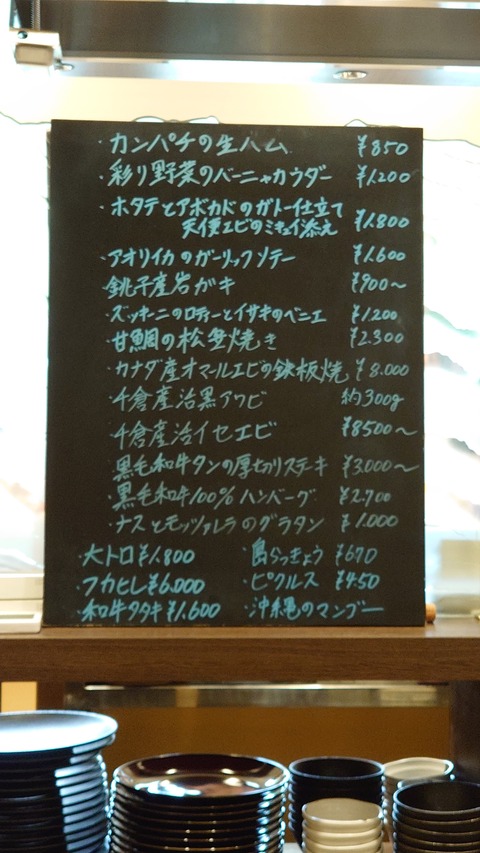 ・カンパチの生ハム ¥850
・彩り野菜のバーニャカウダー ¥1,200
・ホタテとアボカドのガトー仕立て
天使エビのミキュイ添え ¥1,800
・アオリイカのガーリックソテー ¥1,600
・銚子産岩ガキ ¥900〜
・ズッキーニのロティーとイサキのベニエ ¥1,200
・甘鯛の松笠焼き ¥2,300
・カナダ産オマールエビの鉄板焼 ¥8,000
・千倉産活黒アワビ 約300g
・千倉産活イセエビ ¥8500〜
・黒毛和牛タンの厚切りステーキ ¥3,000〜
・黒毛和牛100%ハンバーグ ¥2,700
・ナスとモッツァレラのグラタン ¥1,000
・大トロ ¥1,800 ・島らっきょう ¥670
・フカヒレ ¥6,000 ・ピクルス ¥450
・和牛タタキ ¥1,600 ・沖縄のマンゴー